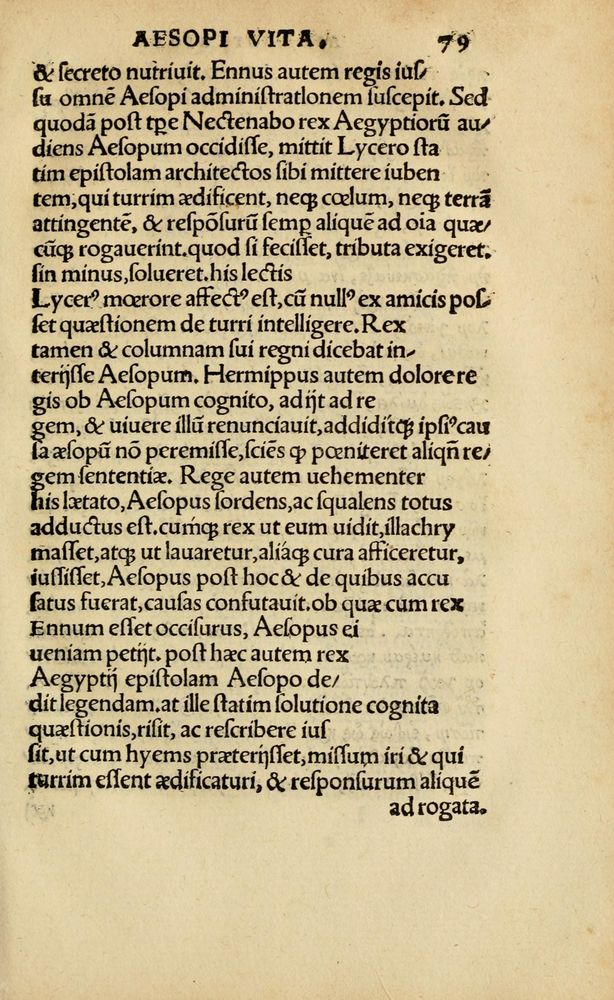 AESOPI VITA. 79
& secreto nutriuit. Ennus autem regis ius/
su omnẽ Aesopi administrationem suscepit. Sed
quodã post tp̃e Nectenabo rex Aegyptiorũ au/
diens Aesopum occidisse, mittit Lycero sta
tim epistolam architectos sibi mittere iuben
tem, qui turrim ædificent, neqꝫ cœlum, neqꝫ terrã
attingentẽ, & respõsurũ semꝑ aliquẽ ad oĩa quæ/
cũqꝫ rogauerint. quod si fecisset, tributa exigeret.
sin minus, solueret. his lectis
Lycerꝰ mœrore affectꝰ est, cũ nullꝰ ex amicis pos/
set quæstionem de turri intelligere. Rex
tamen & columnam sui regni dicebat in/
terijsse Aesopum. Hermippus autem dolore re
gis ob Aesopum cognito, adijt ad re
gem, & uiuere illũ renunciauit, addiditqꝫ ipsiꝰ cau
sa æsopũ nõ peremisse, sciẽs ꝙ pœniteret aliqñ re/
gem sententiæ. Rege autem uehementer
his lætato, Aesopus sordens, ac squalens totus
adductus est. cumqꝫ rex ut eum uidit, illachry
masset, atqꝫ ut lauaretur, aliáqꝫ cura afficeretur,
iussisset, Aesopus post hoc & de quibus accu
satus fuerat, causas confutauit. ob quæ cum rex
Ennum esset occisurus, Aesopus ei
ueniam petijt. post hæc autem rex
Aegyptij epistolam Aesopo de/
dit legendam. at ille statim solutione cognita
quæstionis, risit, ac rescribere ius
sit, ut cum hyems præterijsset, missum iri & qui
turrim essent ædificaturi, & responsurum aliquẽ
ad rogata.